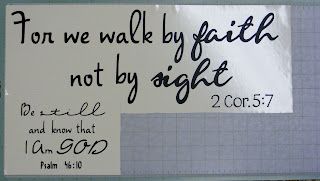 For we walk by faith
not by sight
2 Cor. 5:7
Be still
and know that
I Am GOD
Psalm 46:10